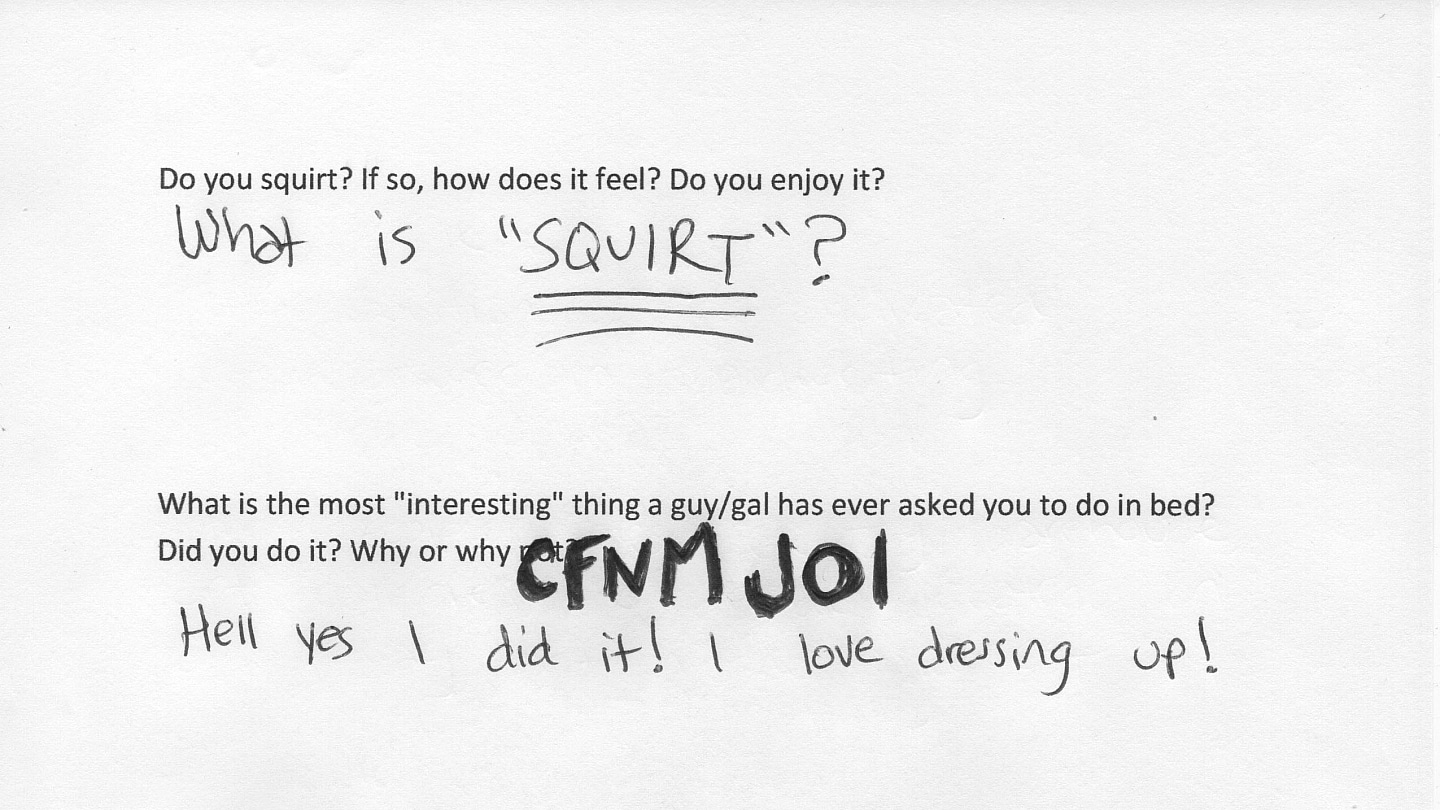 Do you squirt? If so, how does it feel? Do you enjoy it?
What is "SQUIRT"?
What is the most "interesting" thing a guy/gal has ever asked you to do in bed?
Did you do it? Why or why not?
CFNM JOI
Hell yes I did it! I love dressing up!